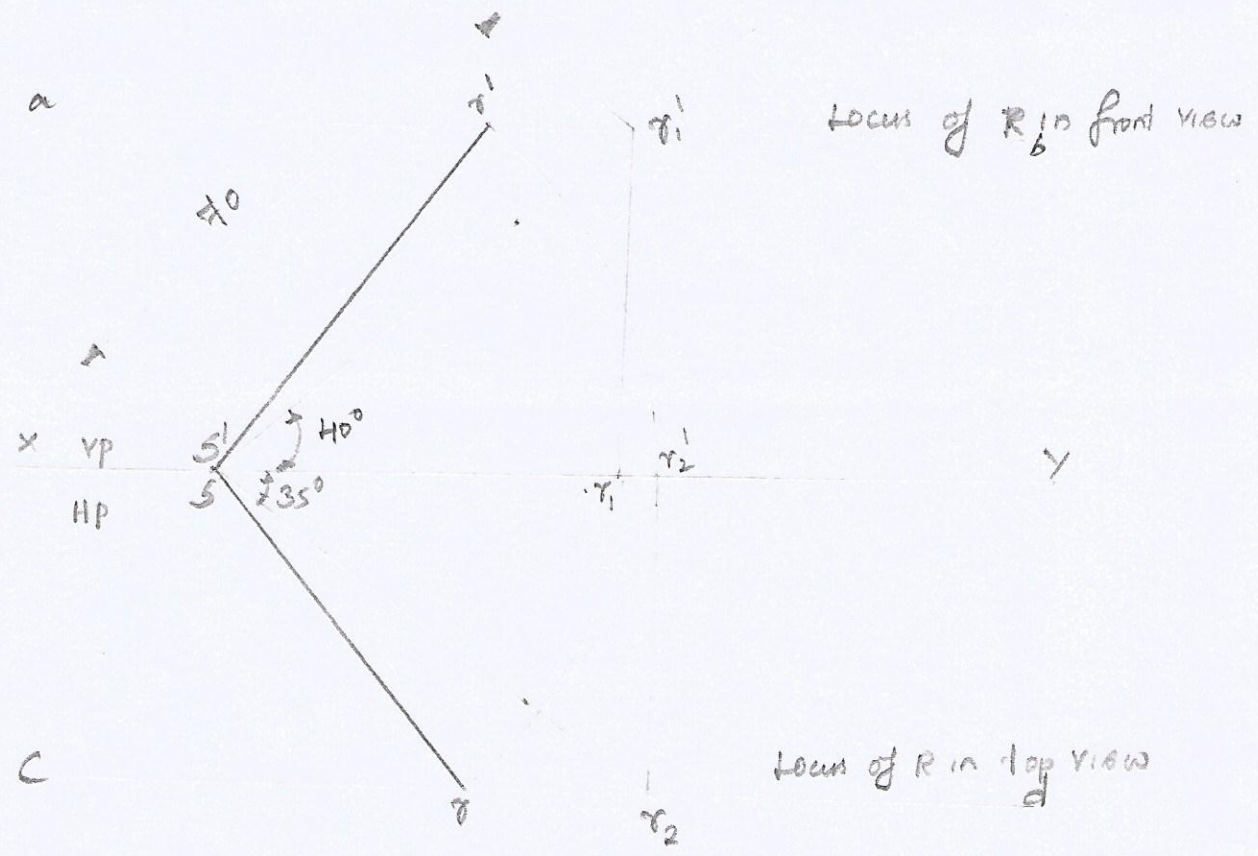 a
r'
r₁'
Locus of R in front view
b
40°
X VP
S'
r₂'
Y
HP
S
35°
r₁
C
Locus of R in top view
d
r
r₂